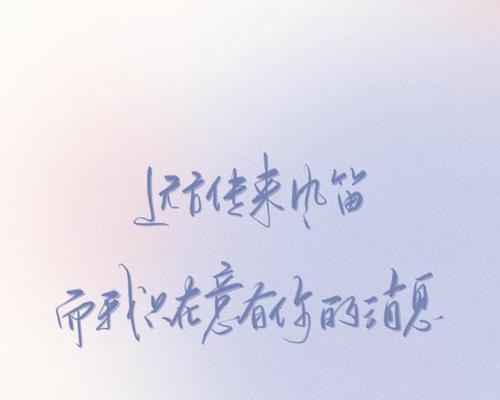 远方传来风笛
而我只在意有你的消息